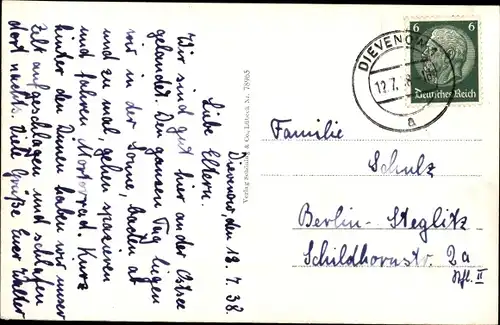 Dievenow, den 18.7.38.
Liebe Eltern.
Wir sind gut hier an der Ostsee
gelandet. Den ganzen Tag liegen
wir in der Sonne, baden ab
und zu mal, gehen spazieren
und fahren Motorrad. Kurz
hinter den Dünen haben wir unser
Zelt aufgeschlagen und schlafen
dort nachts. Viele Grüße Euer Walter
Verlag Schöning & Co., Lübeck
DIEVENOW
6 6
Deutsches Reich
a
Familie
Schulz
Berlin-Steglitz
Schildhornstr. 2a
II